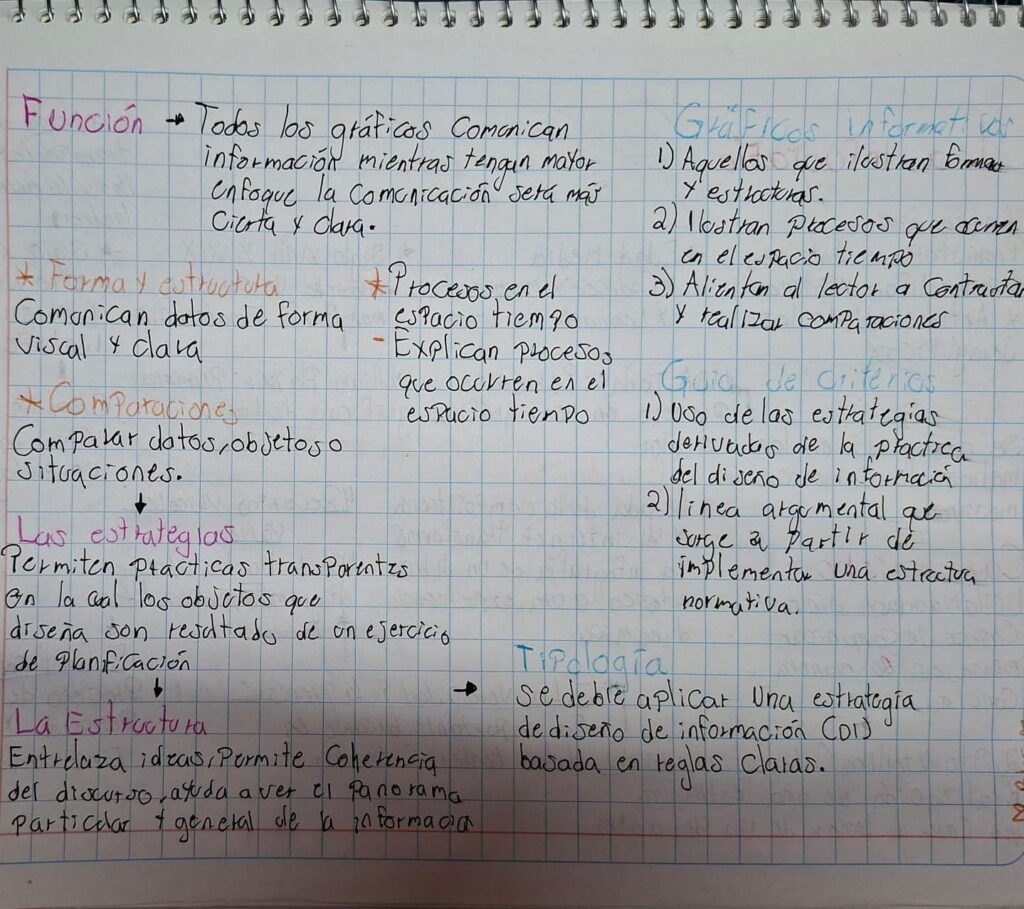 Función → Todos los gráficos Comonican
información mientras tengan mayor
enfoque la comonicación será más
cierta y clara.
* Forma y estructura
Comonican datos de forma
viscal y clara
* Comparaciones
Comparar datos, objetos o
situaciones.
* Procesos en el
espacio tiempo
- Explican procesos
que ocurren en el
espacio tiempo
Las estrategias
Permiten practicas transparentes
en la cual los objetos que
diseña son resultado de un ejercicio
de planificación
La Estructura
Entrelaza ideas, Permite Coherencia
del discurso, ayuda a ver el panorama
particular y general de la informacion
Gráficos informativos
1) Aquellos que ilustran formas
y estructuras.
2) Ilustran procesos que ocurren
en el espacio tiempo
3) Alientan al lector a contrastar
y realizar comparaciones
Guia de criterios
1) Uso de las estrategias
derivadas de la practica
del diseño de información
2) linea argumental que
surge a partir de
implementar una estructura
normativa.
Tipología
→ se deble aplicar una estrategia
de diseño de información (DI)
basada en reglas claras.